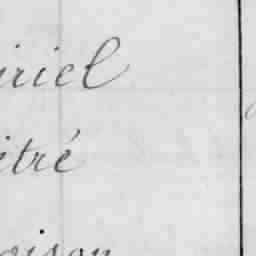 iriel
itré
oison